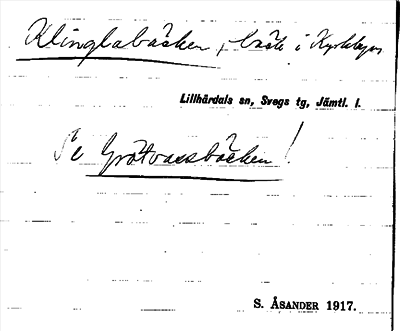 Klinglabäcken, bäck i Kyrkbyn
Lillhärdals sn, Svegs tg, Jämtl. l.
Se Gråtvassbäcken!
S. ÅSANDER 1917.